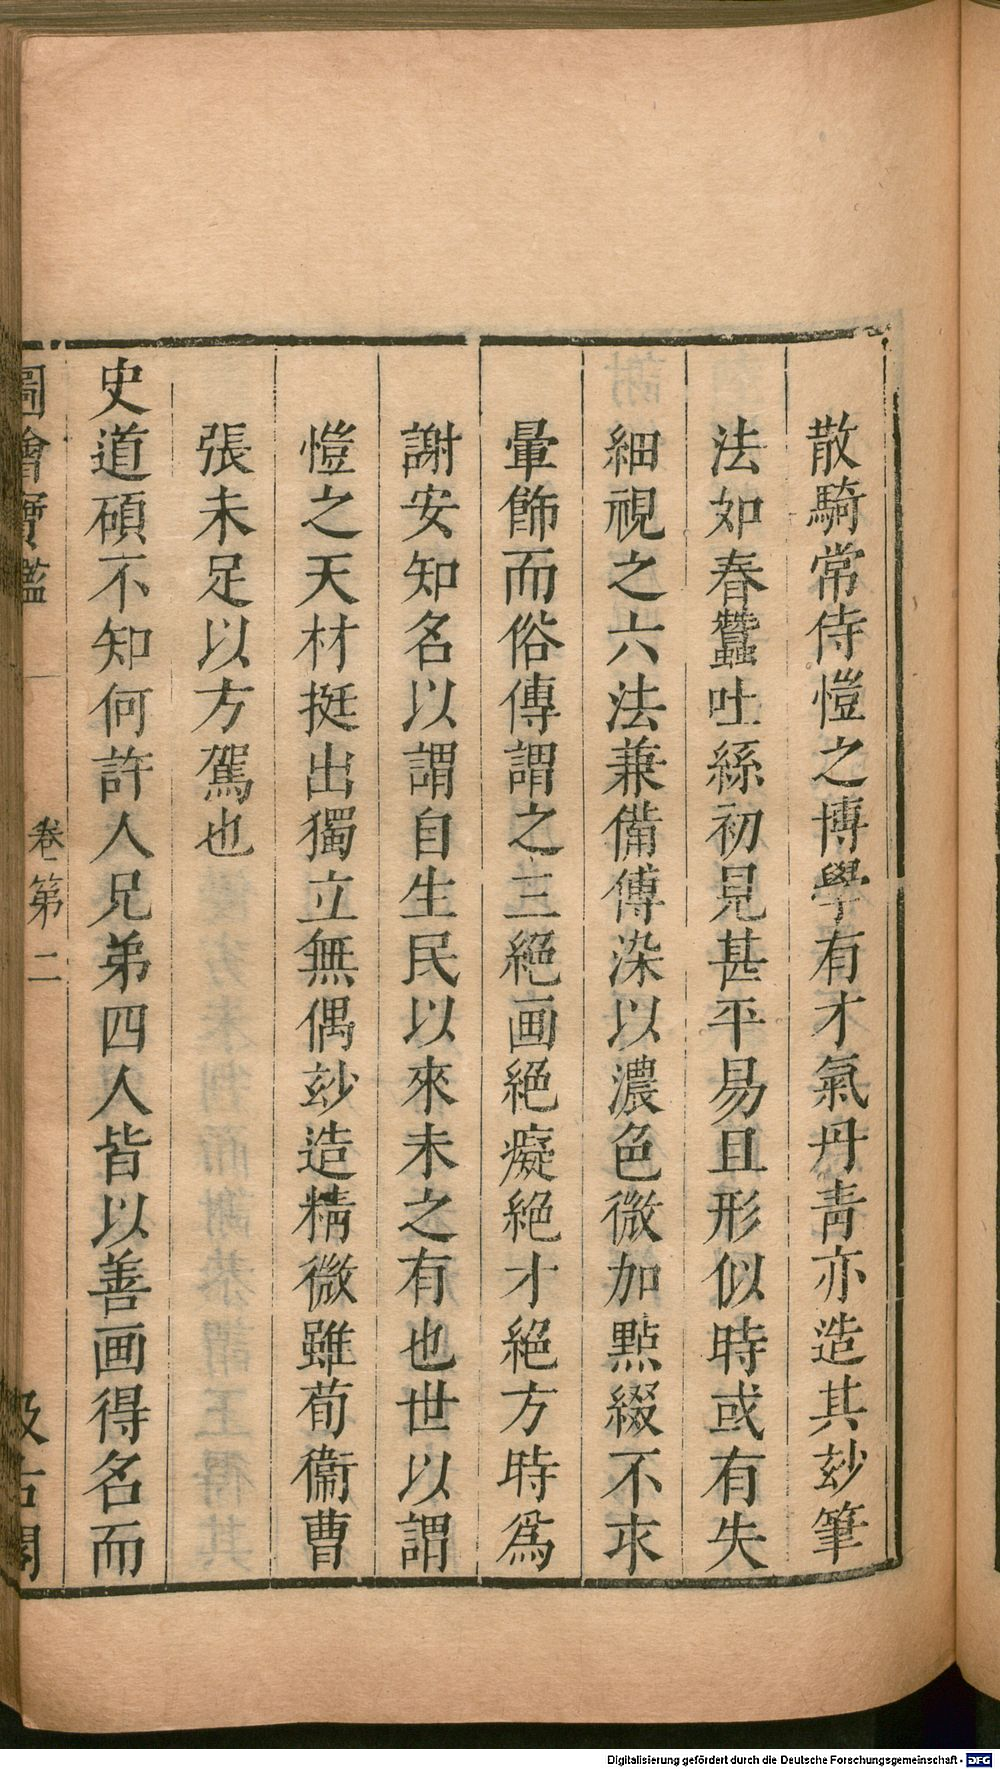 散騎常侍愷之博學有才氣丹青亦造其玅筆
法如春蠶吐絲初見甚平易且形似時或有失
細視之六法兼備傅染以濃色微加點綴不求
暈飾而俗傳謂之三絕画絕癡絕才絕方時爲
謝安知名以謂自生民以來未之有也世以謂
愷之天材挺出獨立無偶玅造精微雖荀衞曹
張未足以方駕也
史道碩不知何許人兄弟四人皆以善画得名而
圖繪寶鑑 卷第二 汲古閣
Digitalisierung gefördert durch die Deutsche Forschungsgemeinschaft - DFG